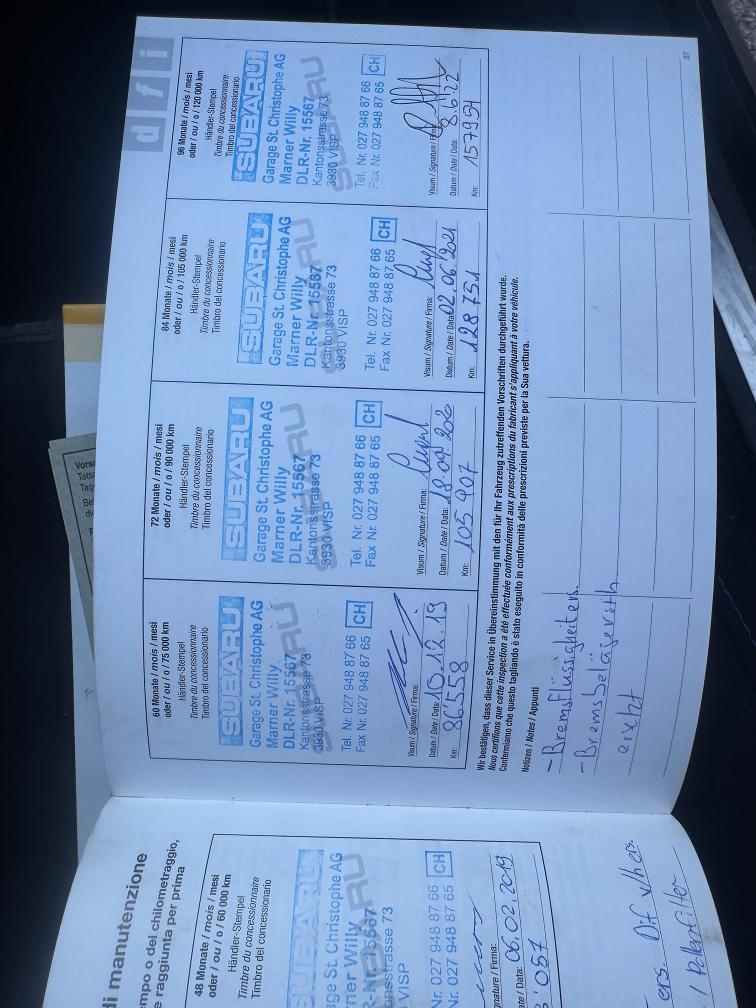 d f i
60 Monate / mois / mesi
oder / ou / o / 75 000 km
Händler-Stempel
Timbre du concessionnaire
Timbro del concessionario
SUBARU
Garage St. Christophe AG
Marner Willy
DLR-Nr. 15567
Kantonsstrasse 73
3930 VISP
Tel. Nr. 027 948 87 66
Fax Nr. 027 948 87 65 CH
Visum / Signature / Firma:
Datum / Date / Data: 13.12.19
Km: 86558
72 Monate / mois / mesi
oder / ou / o / 90 000 km
Händler-Stempel
Timbre du concessionnaire
Timbro del concessionario
SUBARU
Garage St. Christophe AG
Marner Willy
DLR-Nr. 15567
Kantonsstrasse 73
3930 VISP
Tel. Nr. 027 948 87 66
Fax Nr. 027 948 87 65 CH
Visum / Signature / Firma:
Datum / Date / Data: 18.09.2020
Km: 105907
84 Monate / mois / mesi
oder / ou / o / 105 000 km
Händler-Stempel
Timbre du concessionnaire
Timbro del concessionario
SUBARU
Garage St. Christophe AG
Marner Willy
DLR-Nr. 15567
Kantonsstrasse 73
3930 VISP
Tel. Nr. 027 948 87 66
Fax Nr. 027 948 87 65 CH
Visum / Signature / Firma:
Datum / Date / Data: 02.06.2021
Km: 128751
96 Monate / mois / mesi
oder / ou / o / 120 000 km
Händler-Stempel
Timbre du concessionnaire
Timbro del concessionario
SUBARU
Garage St. Christophe AG
Marner Willy
DLR-Nr. 15567
Kantonsstrasse 73
3930 VISP
Tel. Nr. 027 948 87 66
Fax Nr. 027 948 87 65 CH
Visum / Signature / Firma:
Datum / Date / Data: 8.6.22
Km: 157954
Wir bestätigen, dass dieser Service in Übereinstimmung mit den für Ihr Fahrzeug zutreffenden Vorschriften durchgeführt wurde.
Nous certifions que cette inspection a été effectuée conformément aux prescriptions du fabricant s'appliquant à votre véhicule.
Confermiamo che questo tagliando è stato eseguito in conformità delle prescrizioni previste per la Sua vettura.
Notizen / Notes / Appunti
- Bremsflüssigkeiters.
- Bremsbeläge vorth.
ersetzt
27
di manutenzione
empo o del chilometraggio,
e raggiunta per prima
48 Monate / mois / mesi
oder / ou / o / 60 000 km
Händler-Stempel
Timbre du concessionnaire
Timbro del concessionario
SUBARU
ge St. Christophe AG
ner Willy
R-Nr. 15567
nsstrasse 73
Nr. 027 948 87 66
Nr. 027 948 87 65 CH
nature / Firma:
te / Data: 06.02.2019
'087
ers. Dif vthers.
/ Pollenfilter